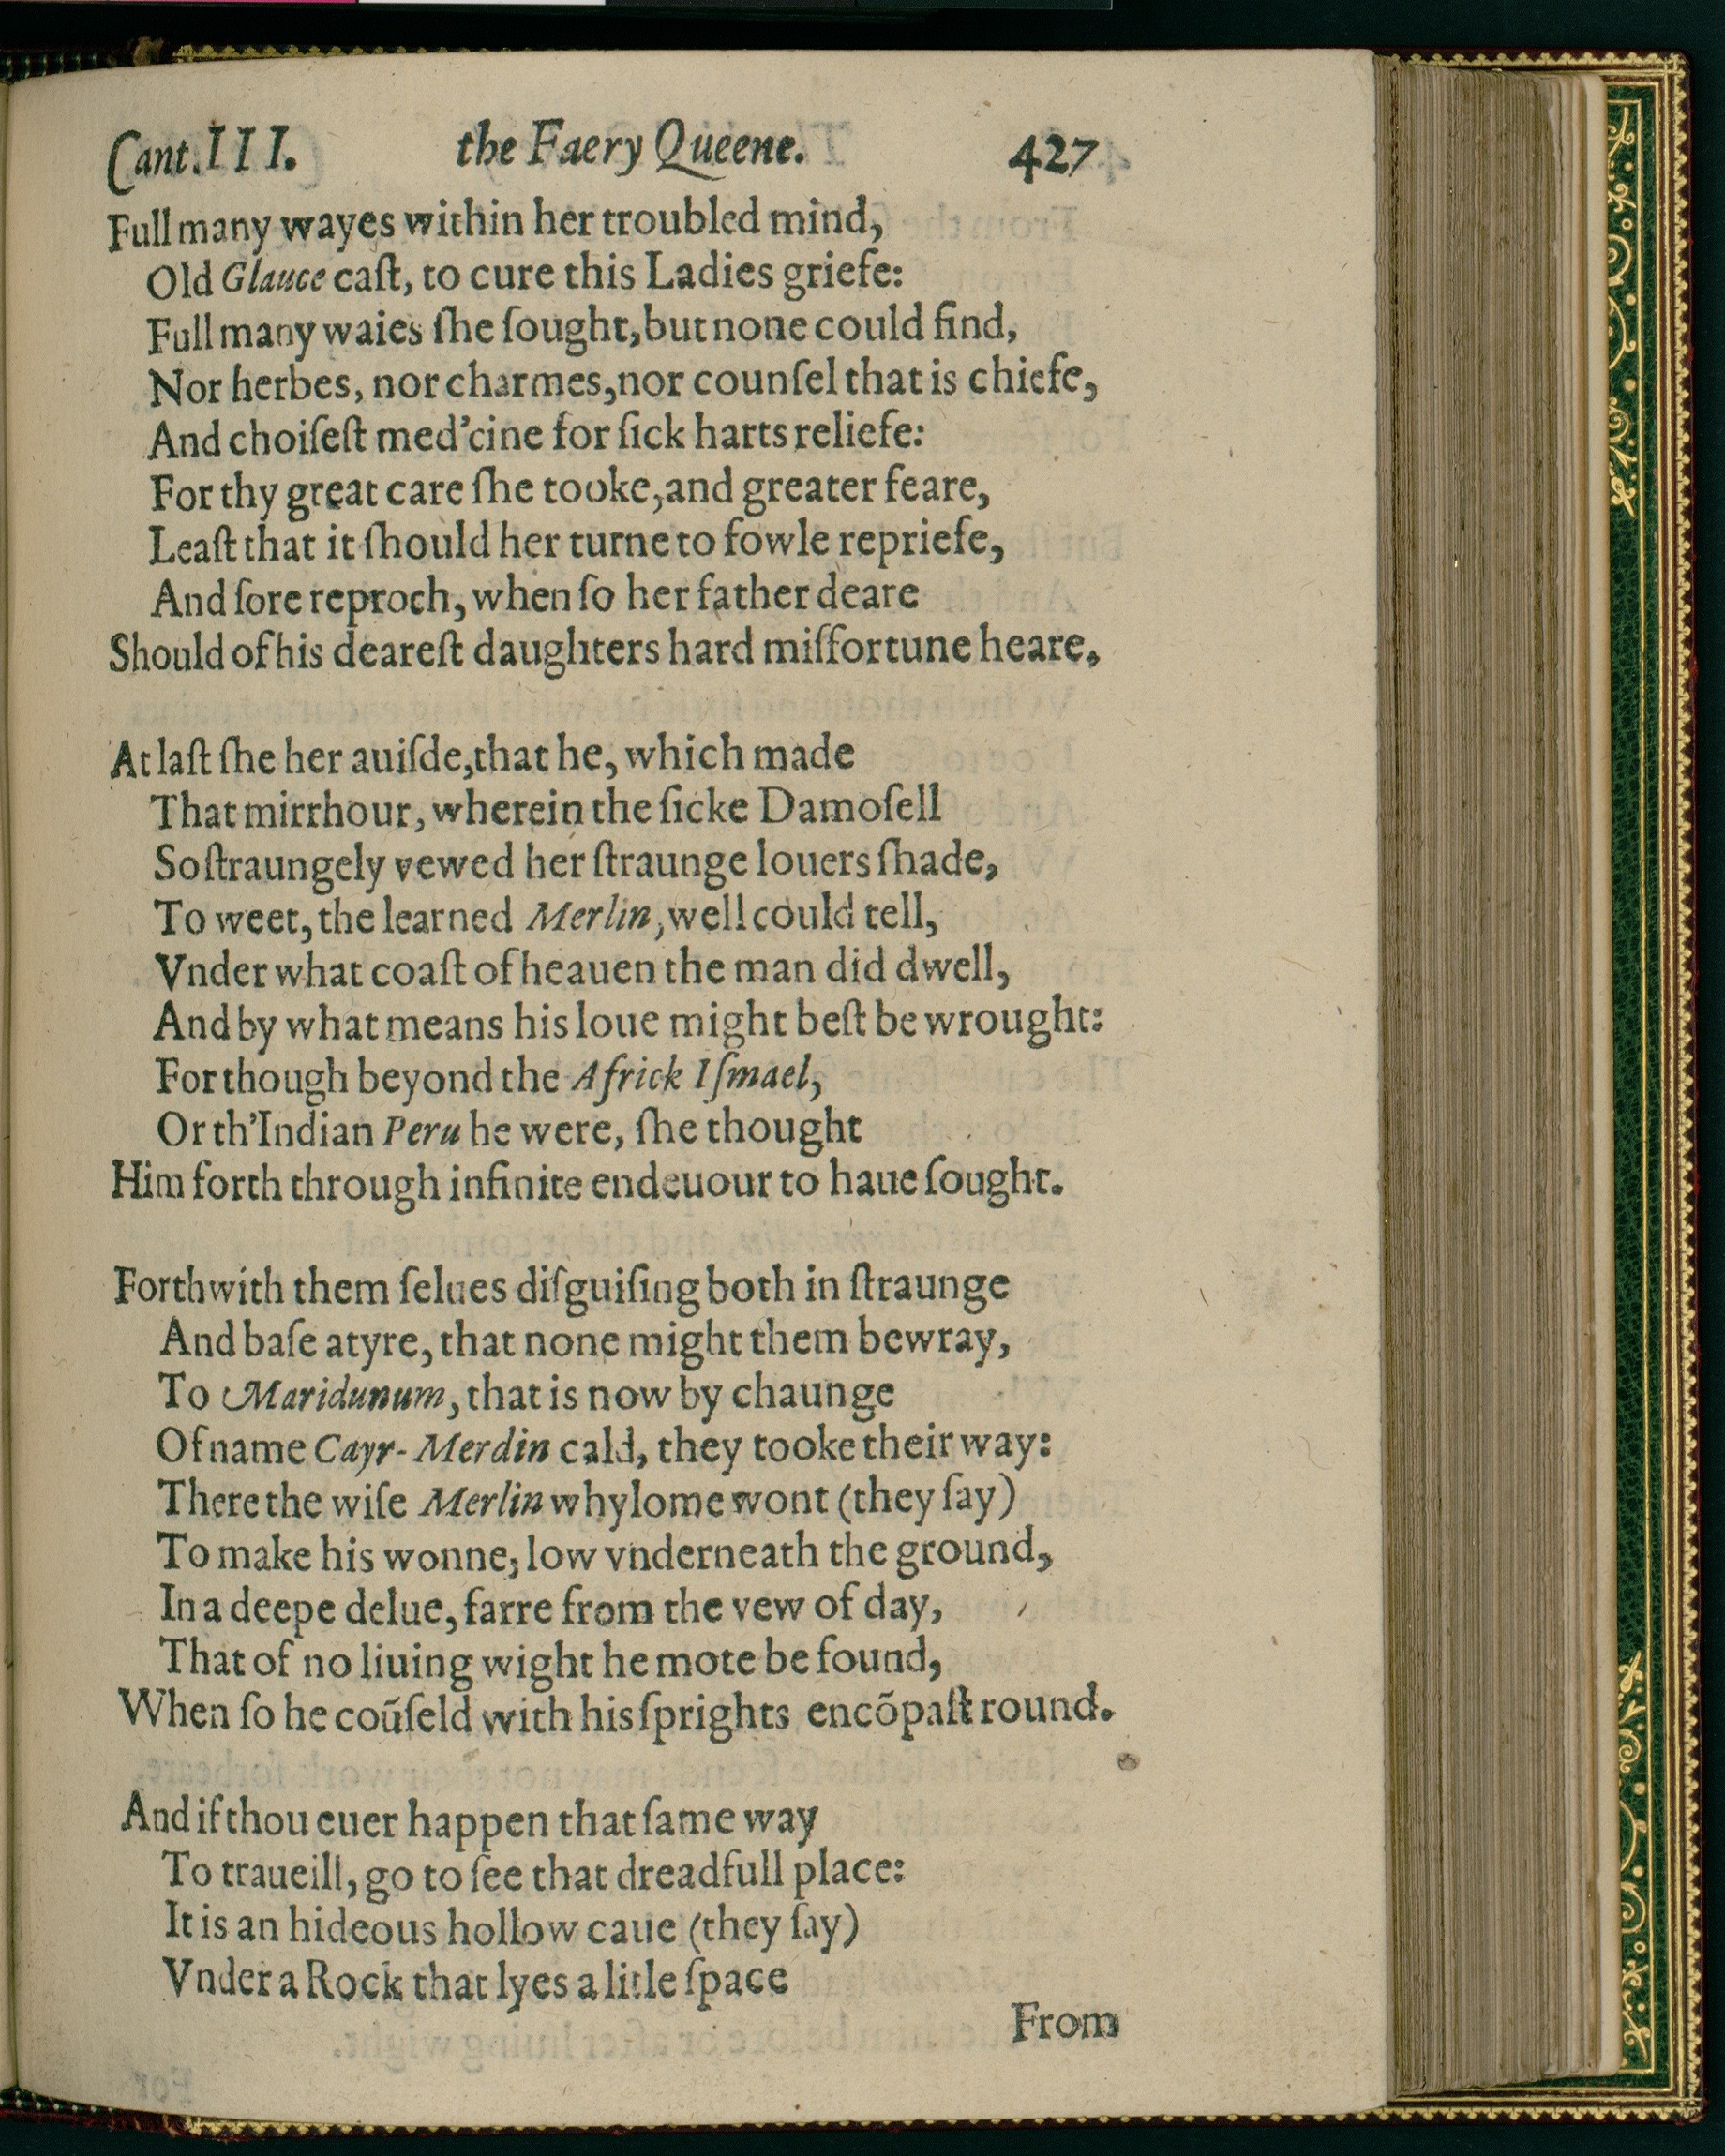 Cant. III. the Faery Queene. 427
Full many wayes within her troubled mind,
Old Glauce caſt, to cure this Ladies griefe:
Full many waies ſhe ſought, but none could find,
Nor herbes, nor charmes, nor counſel that is chiefe,
And choiſeſt med'cine for ſick harts reliefe:
For thy great care ſhe tooke, and greater feare,
Leaſt that it ſhould her turne to fowle repriefe,
And ſore reproch, when ſo her father deare
Should of his deareſt daughters hard miſfortune heare.
At laſt ſhe her auiſde, that he, which made
That mirrhour, wherein the ſicke Damoſell
So ſtraungely vewed her ſtraunge louers ſhade,
To weet, the learned Merlin, well could tell,
Vnder what coaſt of heauen the man did dwell,
And by what means his loue might beſt be wrought:
For though beyond the Africk Iſmael,
Or th'Indian Peru he were, ſhe thought
Him forth through infinite endeuour to haue ſought.
Forthwith them ſelues diſguiſing both in ſtraunge
And baſe atyre, that none might them bewray,
To Maridunum, that is now by chaunge
Of name Cayr-Merdin cald, they tooke their way:
There the wiſe Merlin whylome wont (they ſay)
To make his wonne, low vnderneath the ground,
In a deepe delue, farre from the vew of day,
That of no liuing wight he mote be found,
When ſo he coũſeld with his ſprights encõpaſt round.
And if thou euer happen that ſame way
To traueill, go to ſee that dreadfull place:
It is an hideous hollow caue (they ſay)
Vnder a Rock that lyes a litle ſpace
From